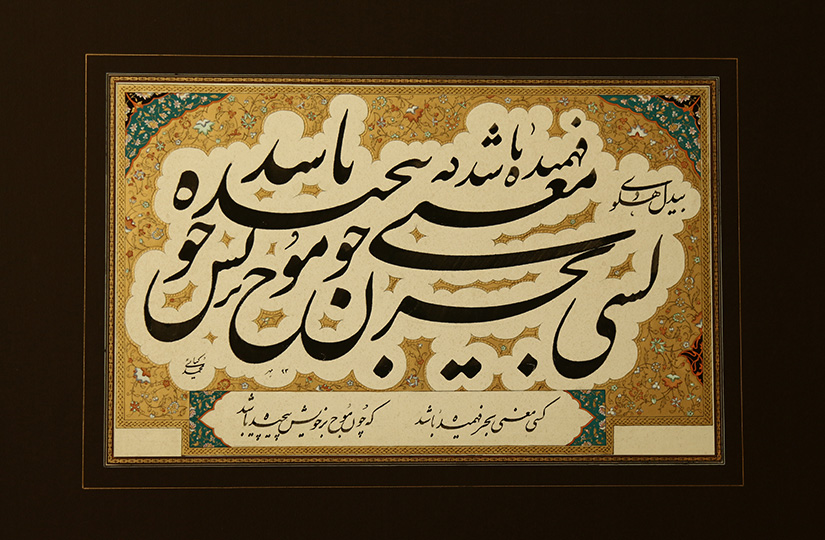 بیدل دهلوی
کسی معنی بحر فهمیده باشد که چون موج بر خویش پیچیده باشد
کسی معنی بحر فهمیده باشد که چون موج بر خویش پیچیده باشد